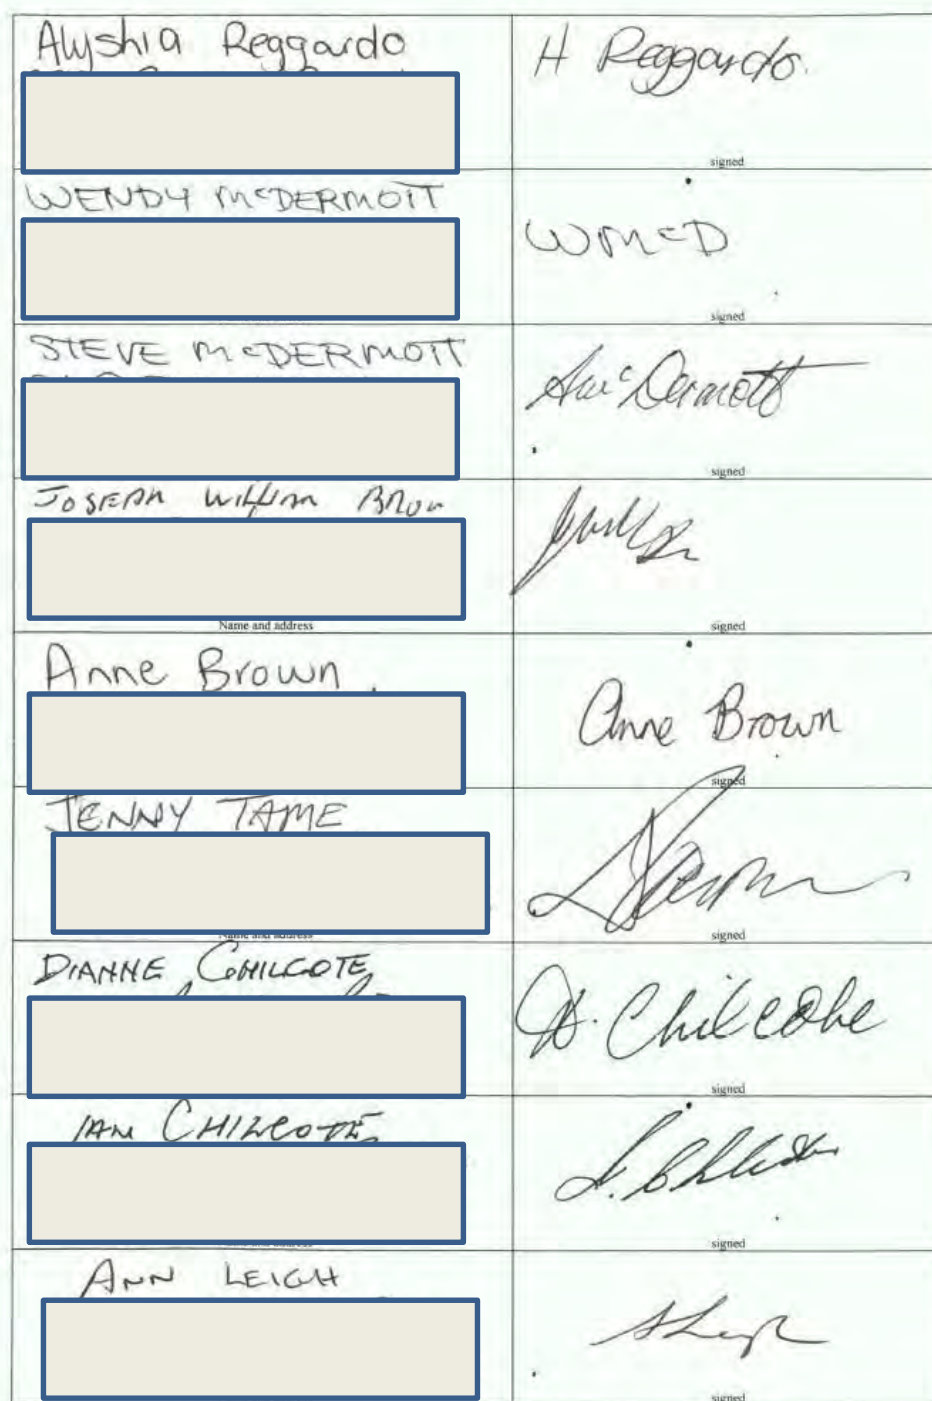 Alyshia Reggardo
H Reggardo.
signed
WENDY McDERMOTT
WMcD
signed
STEVE McDERMOTT
SMcDermott
signed
JOSEPH WILLIAM
Name and address
signed
Anne Brown
Anne Brown
signed
JENNY TAME
Name and address
signed
DIANNE CHILCOTE
D. Chilcote
signed
IAN CHILCOTE
signed
ANN LEIGH
signed